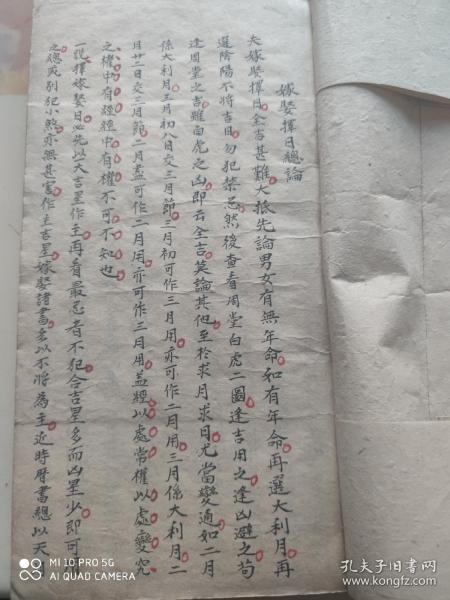 嫁娶擇日總論
夫嫁娶擇日全吉甚難大抵先論男女有無年命如有年命再選大利月再
選陰陽不將吉日勿犯禁忌然後查看周堂白虎二圖逢吉用之逢凶避之苟
逢周堂之吉雖白虎之凶即云全吉莫論其他至於求月求日尤當變通如二月
係大利月三月初八日交三月節三月初可作三月用亦可作二月用三月係大利月二
月廿一日交三月節二月盡可作二月用亦可作三月用蓋經以處常權以處變究
之權中有經經中有權不可不知也
一從擇嫁娶日必先以天吉星作主再看最忌者不犯合吉星多而凶星少即可
之總或別犯小煞亦無甚害作主吉星嫁娶諸書多以不將為主近時曆書總以天
MI 10 PRO 5G
AI QUAD CAMERA
孔夫子旧书网
kongfz.com